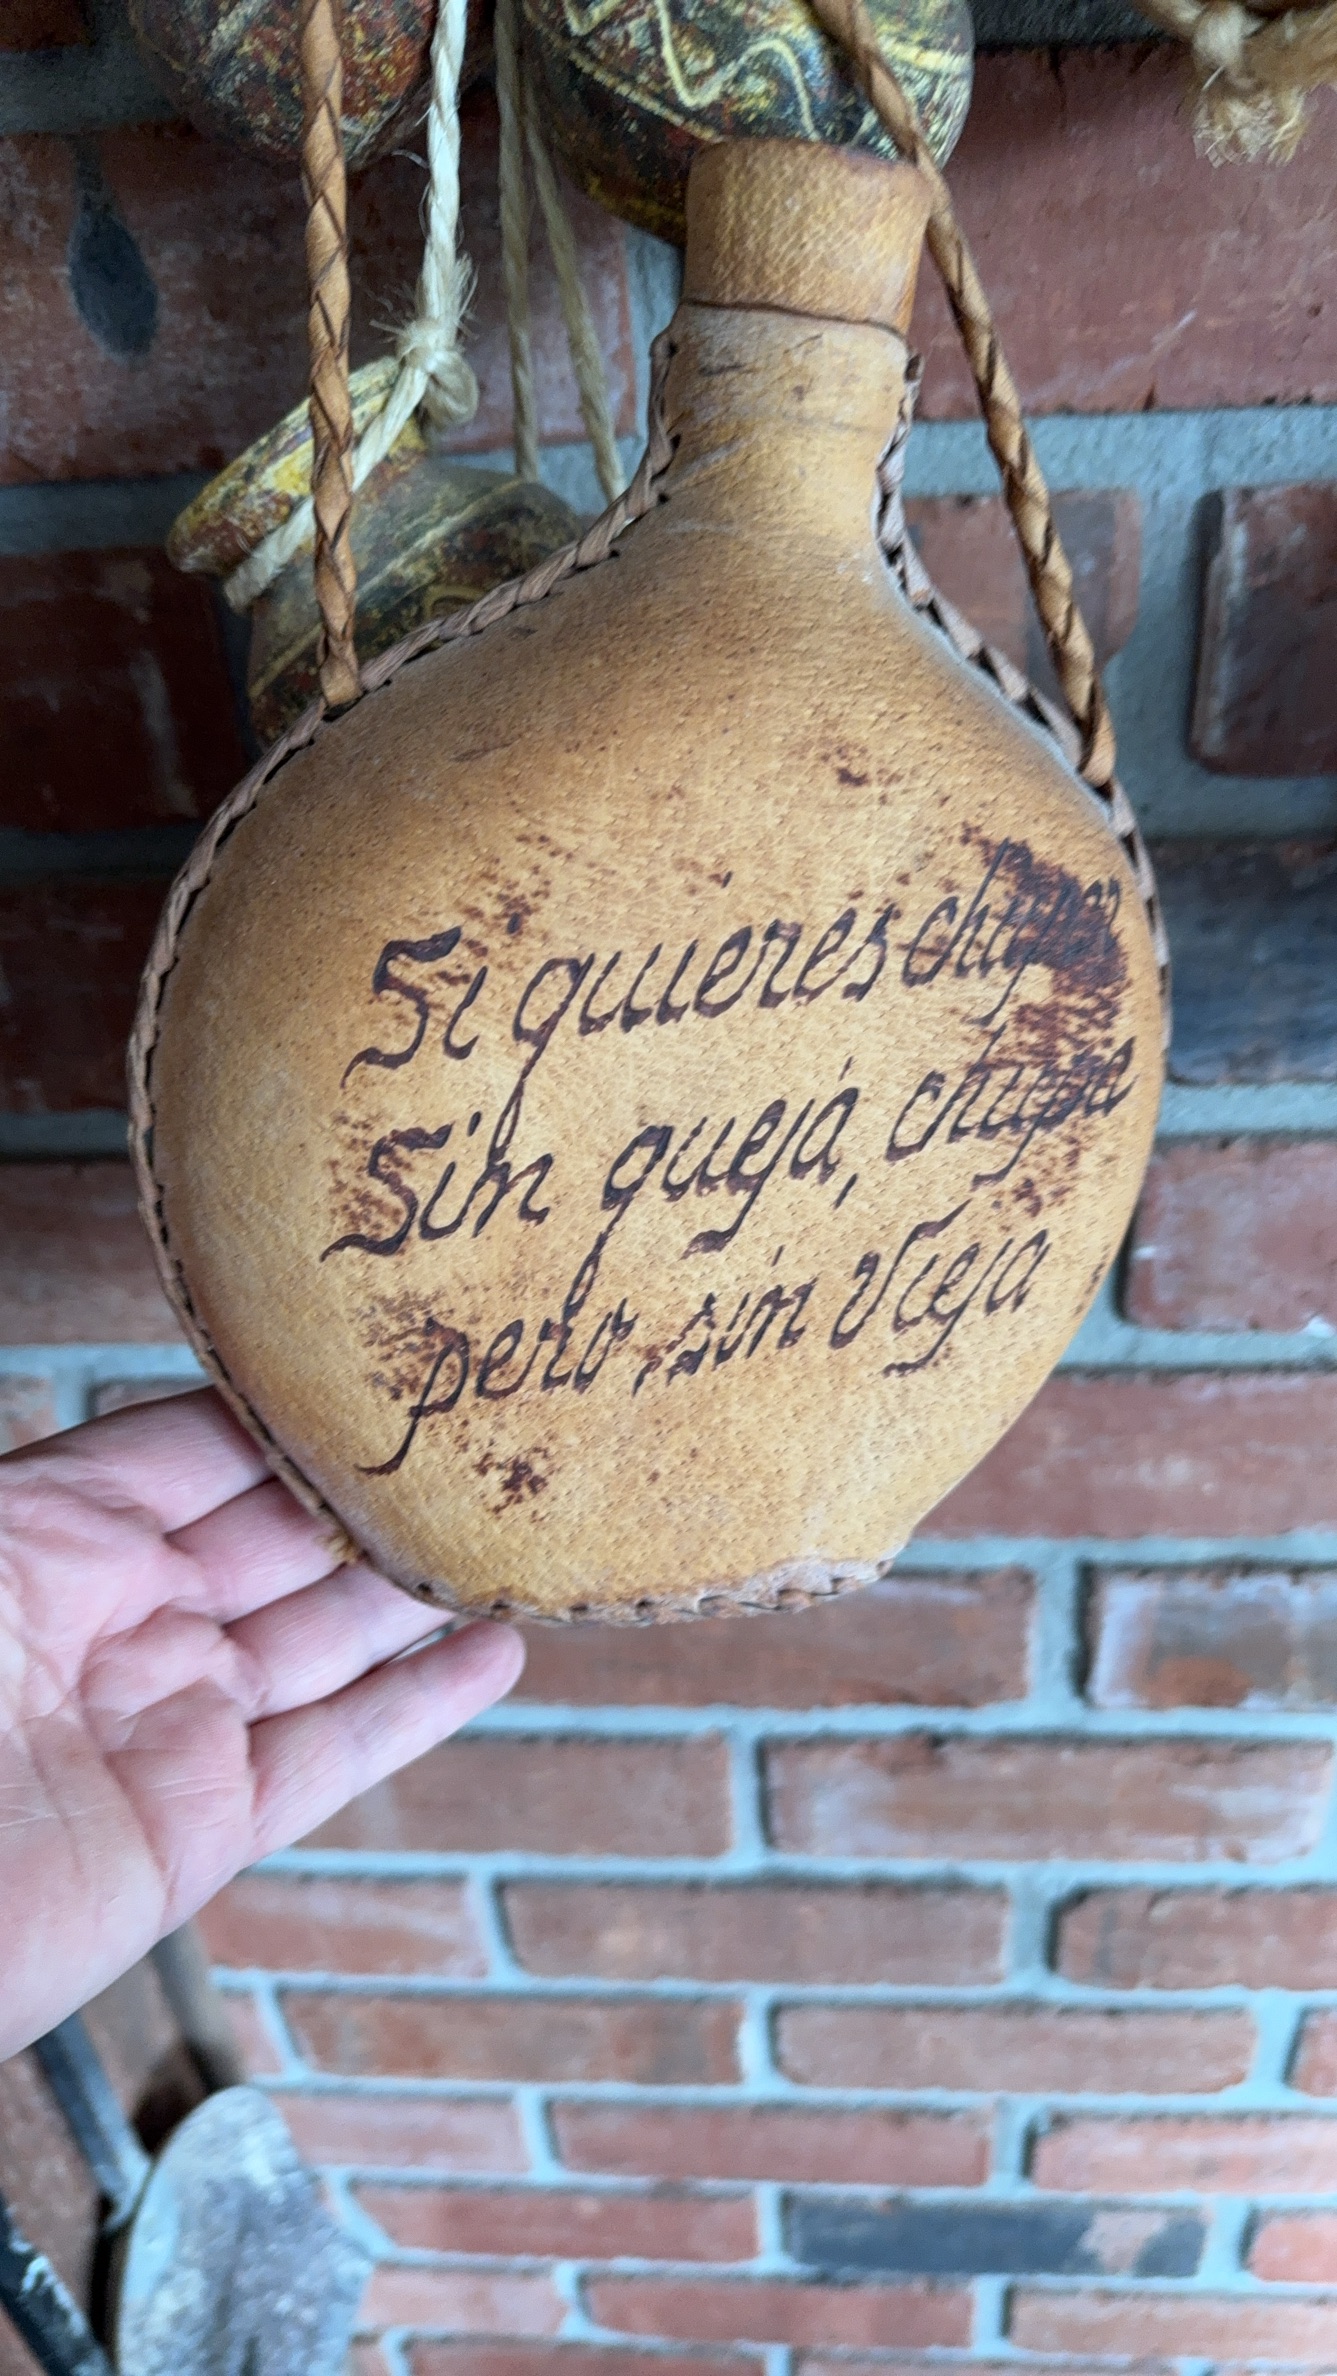 Si quieres chupar
Sin quejá, chupa
pero sin Vieja